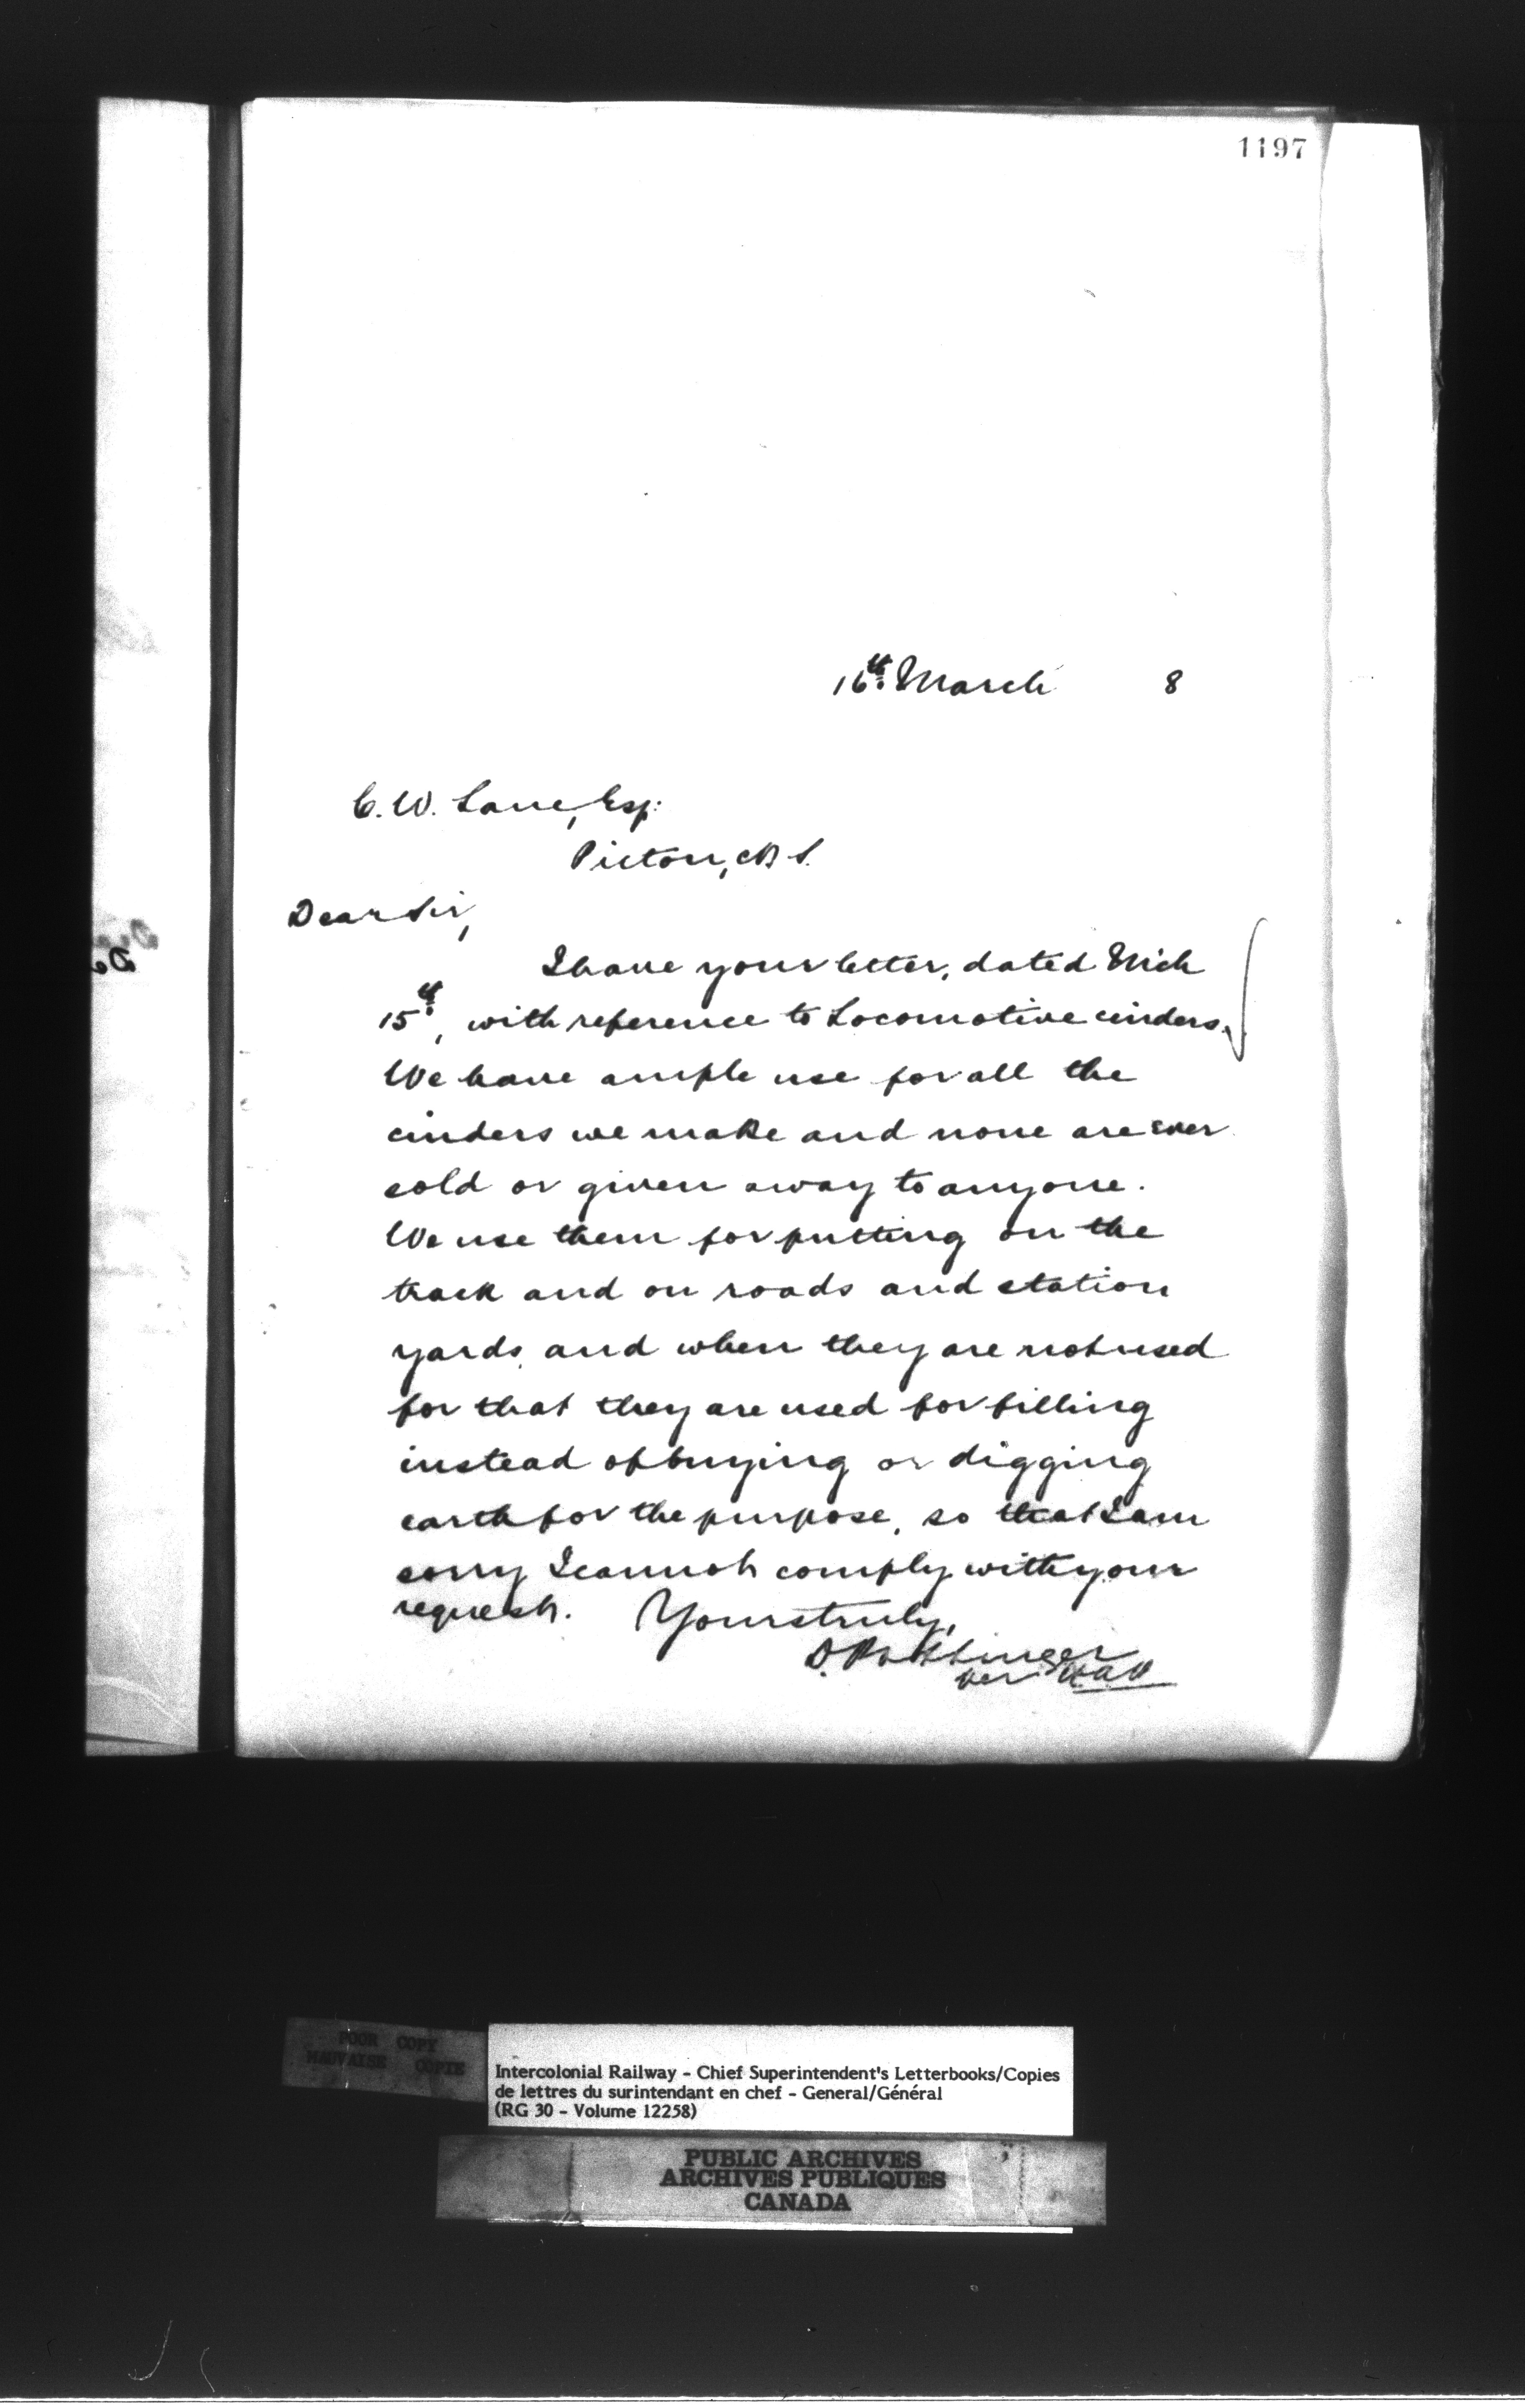 1197
16th. March 8
C. W. Lane, Esq:
Pictou, N. S.
Dear Sir,
I have your letter, dated Mch
15th, with reference to Locomotive cinders.
We have ample use for all the
cinders we make and none are ever
sold or given away to anyone.
We use them for putting on the
track and on roads and station
yards, and when they are not used
for that they are used for filling
instead of buying or digging
earth for the purpose, so that I am
sorry I cannot comply with your
request. Yours truly,
D. Pottinger
per
POOR COPY
MAUVAISE COPIE
Intercolonial Railway - Chief Superintendent's Letterbooks/Copies
de lettres du surintendant en chef - General/Général
(RG 30 - Volume 12258)
PUBLIC ARCHIVES
ARCHIVES PUBLIQUES
CANADA